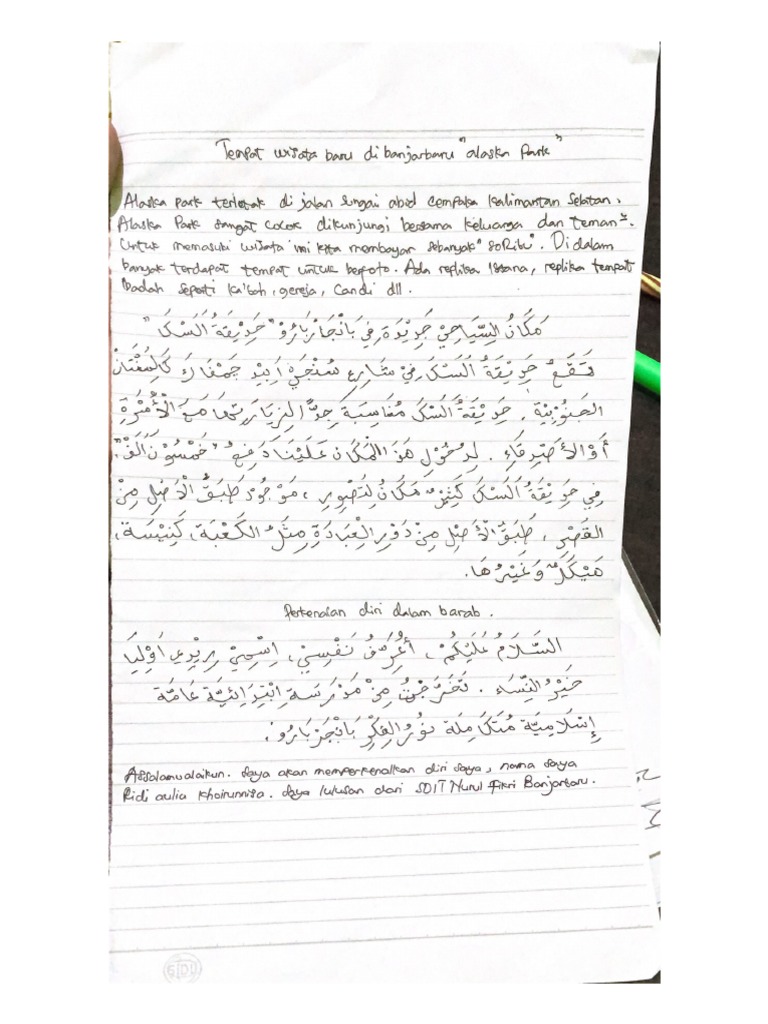 Tempat wisata baru di banjarbaru "alaska Park"
Alaska park terletak di jalan sungai abid cempaka kalimantan selatan.
Alaska Park sangat cocok dikunjungi bersama keluarga dan teman².
Untuk memasuki wisata ini kita membayar sebanyak "50Ribu". Di dalam
banyak terdapat tempat untuk berfoto. Ada replika istana, replika tempat
ibadah seperti ka'bah, gereja, candi dll.
مَكَانُ السِّيَاحِيْ جَدِيْدَة فِي بَانْجَارْبَارُوْ "حَدِيْقَةُ اَلَسْكَ"
تَقَعُ حَدِيْقَةُ اَلَسْكَ فِيْ شَارِعِ سُنْجَيْ اَبِيْد جَمْفَاكَ كَالِمَنْتَانْ
الجَنُوْبِيَّة . حَدِيْقَةُ اَلَسْكَ مُنَاسِبَة جِدًّا لِزِيَارَتِهَا مَعَ الْأُسْرَةِ
أَوْ الأَصْدِقَاءِ . لِدُخُوْلِ هَذَا الْمَكَانِ عَلَيْنَا دَفْعُ "خَمْسُوْنَ اَلَفْ"
فِي حَدِيْقَةُ اَلَسْكَ كَثِيْرٌ مَكَانٌ لِتَصْوِيْرِ ، مَوْجُوْد طَبَقُ الْاَصْلِ مِنْ
القَصْرِ ، طَبَقُ الْأَصْلِ مِنْ دَوْرِ الْعِبَادَةِ مِثْلُ الكَعْبَة، كَنِيْسَة،
هَيْكَلٌ وَغَيْرُهَا.
Perkenalan diri dalam barab.
السَّلَامُ عَلَيْكُمْ ، أُعَرِّفُ نَفْسِيْ، اِسْمِيْ رِيْدِي اَوْلِيَا
خَيْرُ النِّسَاء . تَخَرَّجْتُ مِنْ مَدْرَسَة اِبْتِدَائِيَّة عَامَّة
إِسْلَامِيَّة مُتَكَامِلَة نُوْرُ الفِكْرِ بَانْجَرْبَارُو.
Assalamualaikun. Saya akan memperkenalkan diri saya, nama saya
Ridi aulia khairunnisa. Saya lulusan dari SDIT Nurul Fikri Banjarbaru.
SIDU